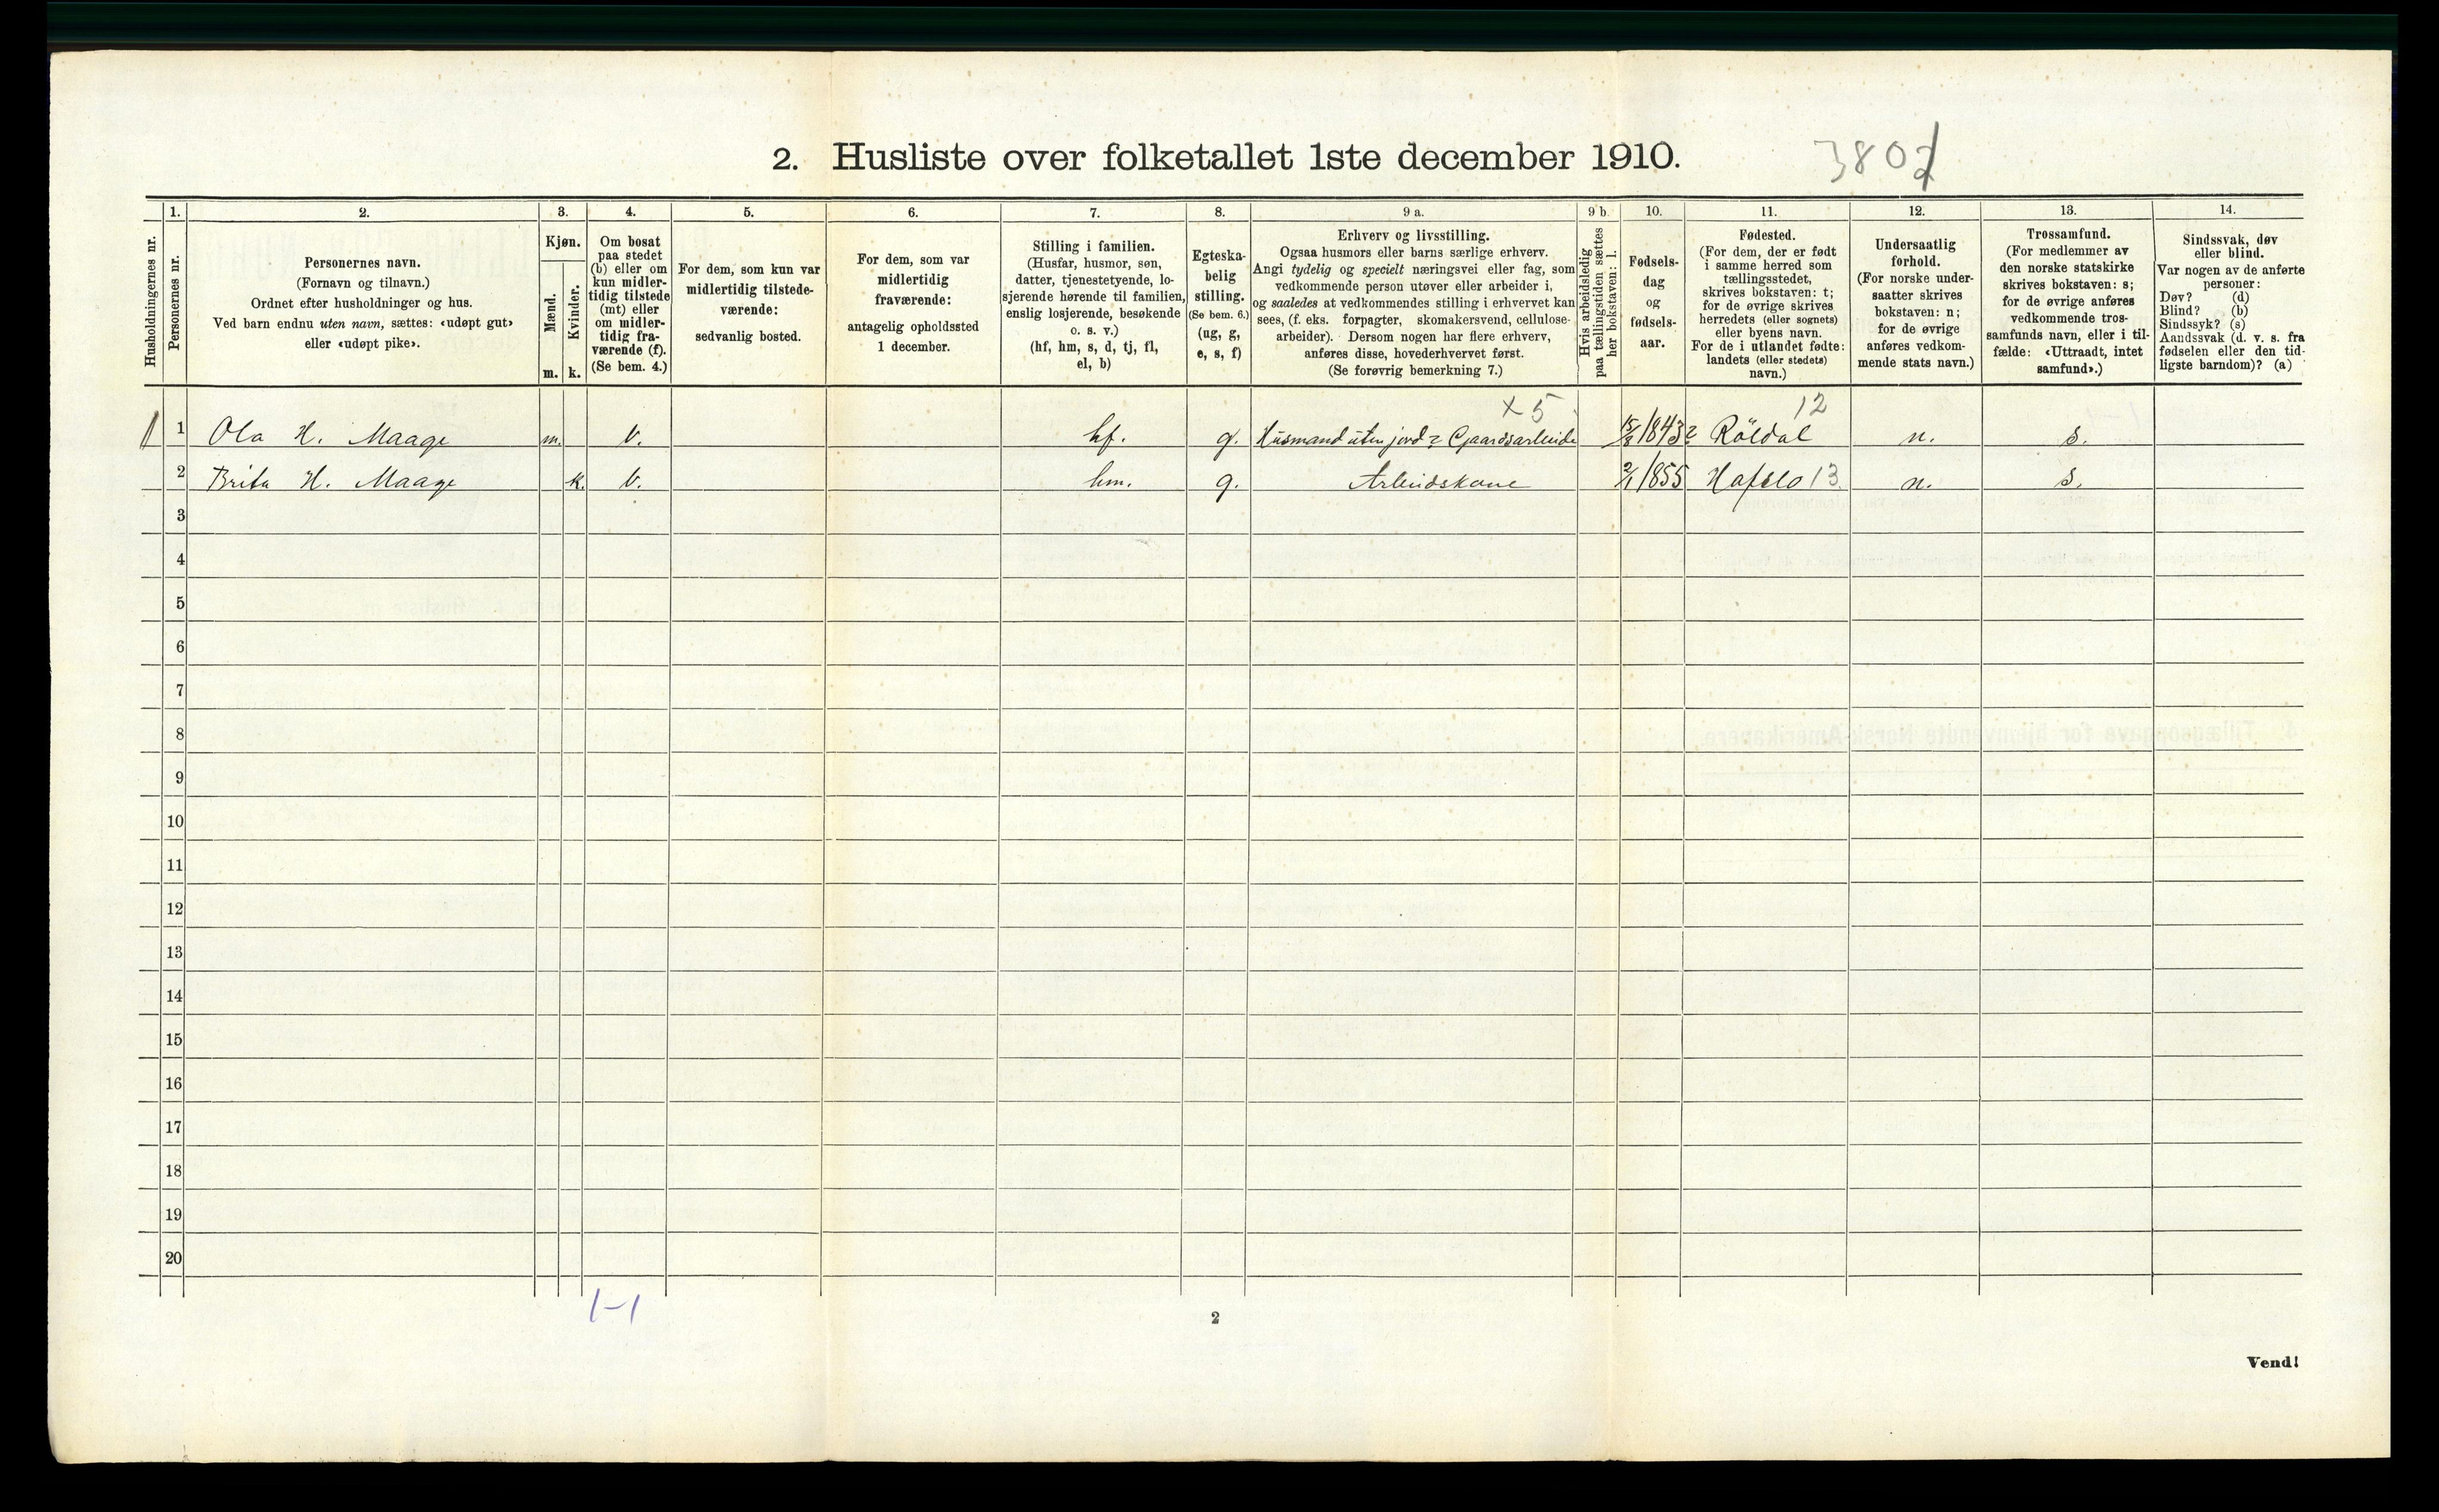 2. Husliste over folketallet 1ste december 1910.
3802
1. 2. 3. 4. 5. 6. 7. 8. 9 a. 9 b. 10. 11. 12. 13. 14.
Husholdningernes nr.
Personernes nr.
Personernes navn.
(Fornavn og tilnavn.)
Ordnet efter husholdninger og hus.
Ved barn endnu uten navn, sættes: «udøpt gut»
eller «udøpt pike».
Kjøn.
Mænd.
Kvinder.
m. k.
Om bosat
paa stedet
(b) eller om
kun midler-
tidig tilstede
(mt) eller
om midler-
tidig fra-
værende (f).
(Se bem. 4.)
For dem, som kun var
midlertidig tilstede-
værende:
sedvanlig bosted.
For dem, som var
midlertidig
fraværende:
antagelig opholdssted
1 december.
Stilling i familien.
(Husfar, husmor, søn,
datter, tjenestetyende, lo-
sjerende hørende til familien,
enslig losjerende, besøkende
o. s. v.)
(hf, hm, s, d, tj, fl,
el, b)
Egteska-
belig
stilling.
(Se bem. 6.)
(ug, g,
e, s, f)
Erhverv og livsstilling.
Ogsaa husmors eller barns særlige erhverv.
Angi tydelig og specielt næringsvei eller fag, som
vedkommende person utøver eller arbeider i,
og saaledes at vedkommendes stilling i erhvervet kan
sees, (f. eks. forpagter, skomakersvend, cellulose-
arbeider). Dersom nogen har flere erhverv,
anføres disse, hovederhvervet først.
(Se forøvrig bemerkning 7.)
Hvis arbeidsledig
paa tællingstiden sættes
her bokstaven: l.
Fødsels-
dag
og
fødsels-
aar.
Fødested.
(For dem, der er født
i samme herred som
tællingsstedet,
skrives bokstaven: t;
for de øvrige skrives
herredets (eller sognets)
eller byens navn.
For de i utlandet fødte:
landets (eller stedets)
navn.)
Undersaatlig
forhold.
(For norske under-
saatter skrives
bokstaven: n;
for de øvrige
anføres vedkom-
mende stats navn.)
Trossamfund.
(For medlemmer av
den norske statskirke
skrives bokstaven: s;
for de øvrige anføres
vedkommende tros-
samfunds navn, eller i til-
fælde: «Uttraadt, intet
samfund».)
Sindssvak, døv
eller blind.
Var nogen av de anførte
personer:
Døv? (d)
Blind? (b)
Sindssyk? (s)
Aandssvak (d. v. s. fra
fødselen eller den tid-
ligste barndom)? (a)
x 5 12
1 Ola H. Maage m. b. hf. g. Husmand uten jord & Gaardsarbeide 15/8 1843 Röldal n. s.
2 Brita H. Maage k. b. hm. g. Arbeidskone 2/1 1855 Hafslo 13 n. s.
3
4
5
6
7
8
9
10
11
12
13
14
15
16
17
18
19
20
1-1
2
Vend!